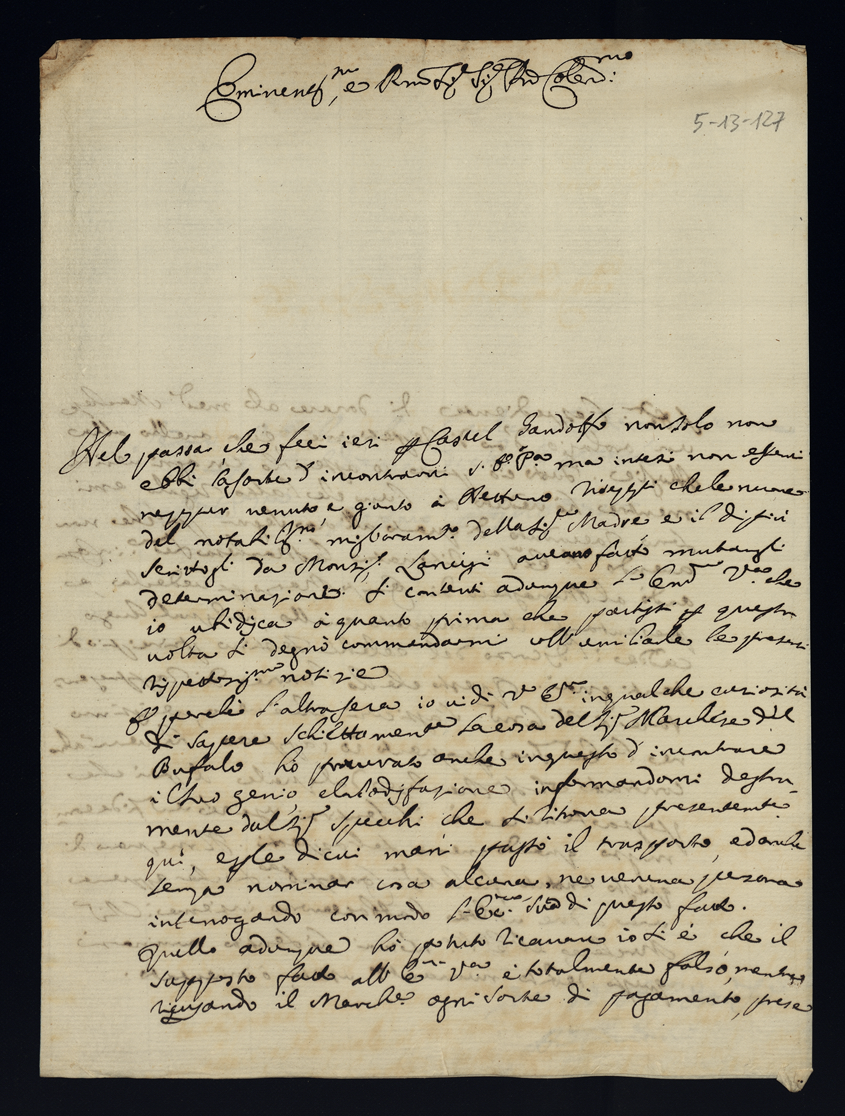 Eminent.mo e Rmo Sig.r Sig.r Pron Colend.mo:
5-13-127
Nel passar che feci ieri p Castel Gandolfo non solo non
ebbi la sorte d'incontrarmi ma intesi non esservi
neppur venuto, e gionto à Nettuno che le nuove
del notabiliss.mo miglioram.to della Sig.ra Madre, e il
scrittogli da Monsig.r Lancisi avevano fatto mutargli
determinazione. Si contenti adunque l'Em.za V.ra che
io ubidisca à quanto prima che partissi p questa
volta si degnò commandarmi coll'umiliarle le presenti
rispettosiss.me notizie
E perche l'altra sera io vidi V. Em. in qualche curiosità
di sapere schiettamente la cosa del Sig.r Marchese del
Bufalo hò procurato anche in questo d'incontrare
il suo genio, e la sodisfazione informandomi destra-
mente dal Sig.r Specchi che si ritrova presentemente
quì, e p le di cui mani passò il trasporto, ed anche
senza nominar cosa alcuna, ne veruna persona
interrogando con modo di questo fatto.
Quello adunque hò potuto ricavare io si è che il
supposto fatto all'Em. V.ra è totalmente falso, mentre
ricusando il March.e ogni sorte di pagamento, prese